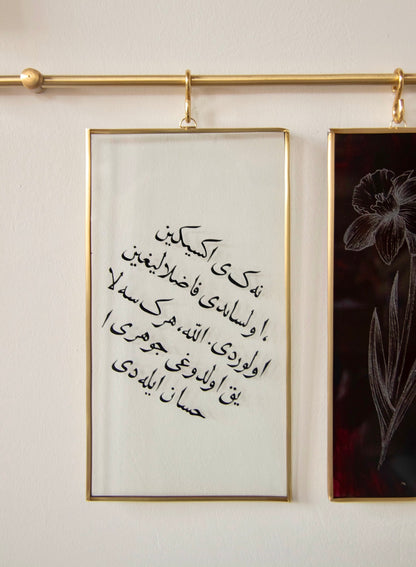 نه ک ی اکسیکین
اولساندی فاضلالیغین،
اولوردی. الله، هرک سه لا
یق اولدوغی جوهری ا
حسان ایله دی